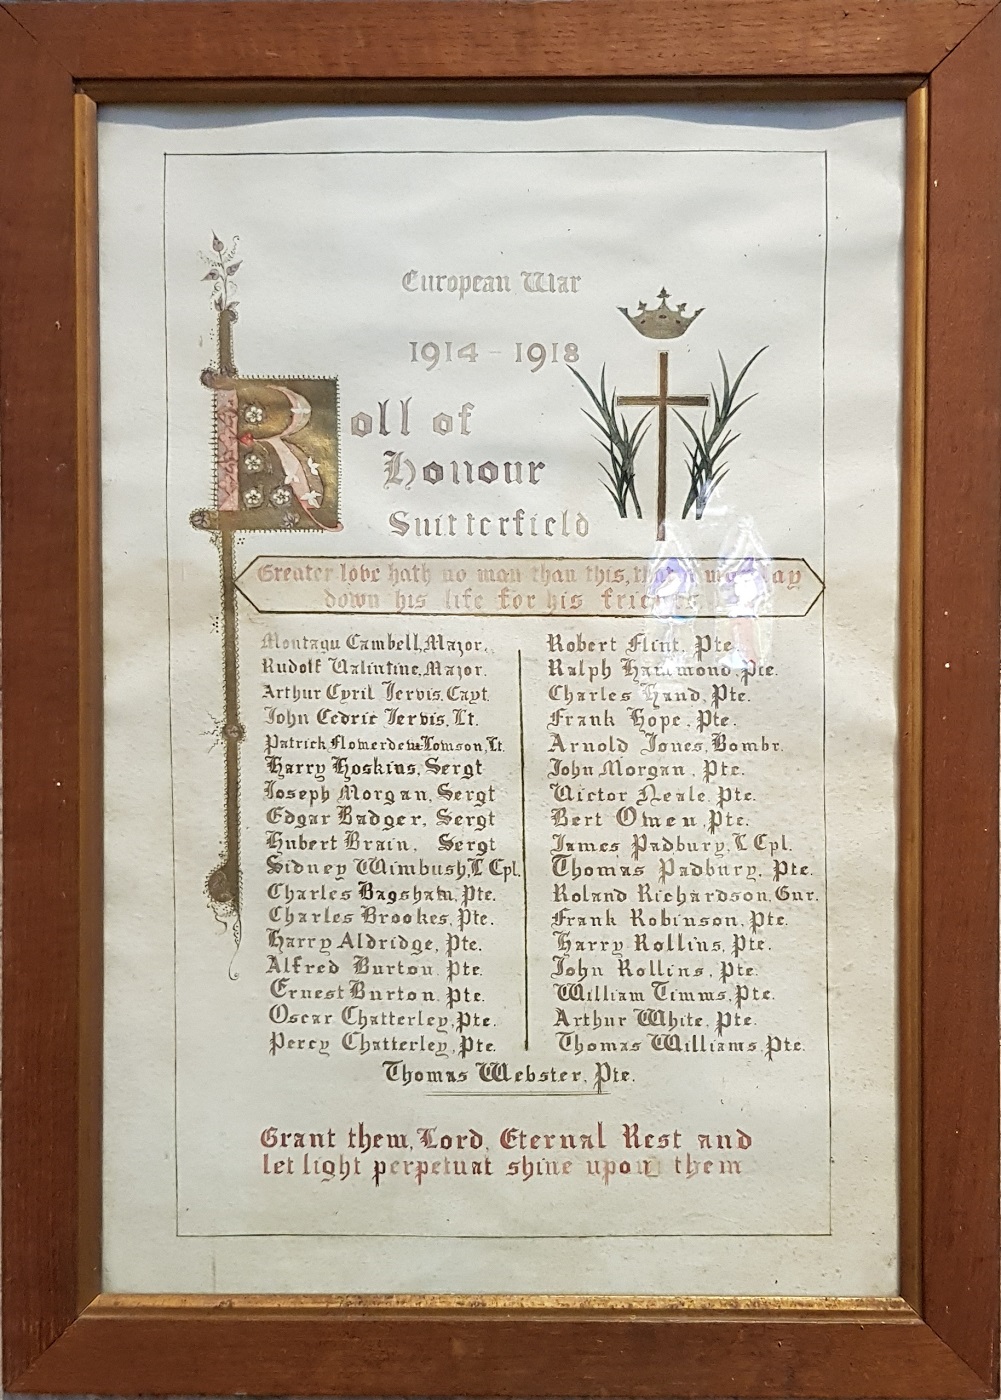 European War
1914 - 1918
Roll of
Honour
Snitterfield
Greater love hath no man than this, that man lay
down his life for his friends.
Montagu Cambell, Major.
Rudolf Valintine, Major.
Arthur Cyril Jervis, Capt.
John Cedric Jervis, Lt.
Patrick Flowerdew Lowson, Lt.
Harry Hoskins, Sergt
Joseph Morgan, Sergt
Edgar Badger, Sergt
Hubert Brain, Sergt
Sidney Wimbush, L Cpl.
Charles Bagshaw, Pte.
Charles Brookes, Pte.
Harry Aldridge, Pte.
Alfred Burton, Pte.
Ernest Burton, Pte.
Oscar Chatterley, Pte.
Percy Chatterley, Pte.
Robert Flint, Pte.
Ralph Hammond, Pte.
Charles Hand, Pte.
Frank Hope, Pte.
Arnold Jones, Bombr.
John Morgan, Pte.
Victor Neale, Pte.
Bert Owen, Pte.
James Padbury, L Cpl.
Thomas Padbury, Pte.
Roland Richardson, Gnr.
Frank Robinson, Pte.
Harry Rollins, Pte.
John Rollins, Pte.
William Timms, Pte.
Arthur White, Pte.
Thomas Williams, Pte.
Thomas Webster, Pte.
Grant them, Lord, Eternal Rest and
let light perpetual shine upon them